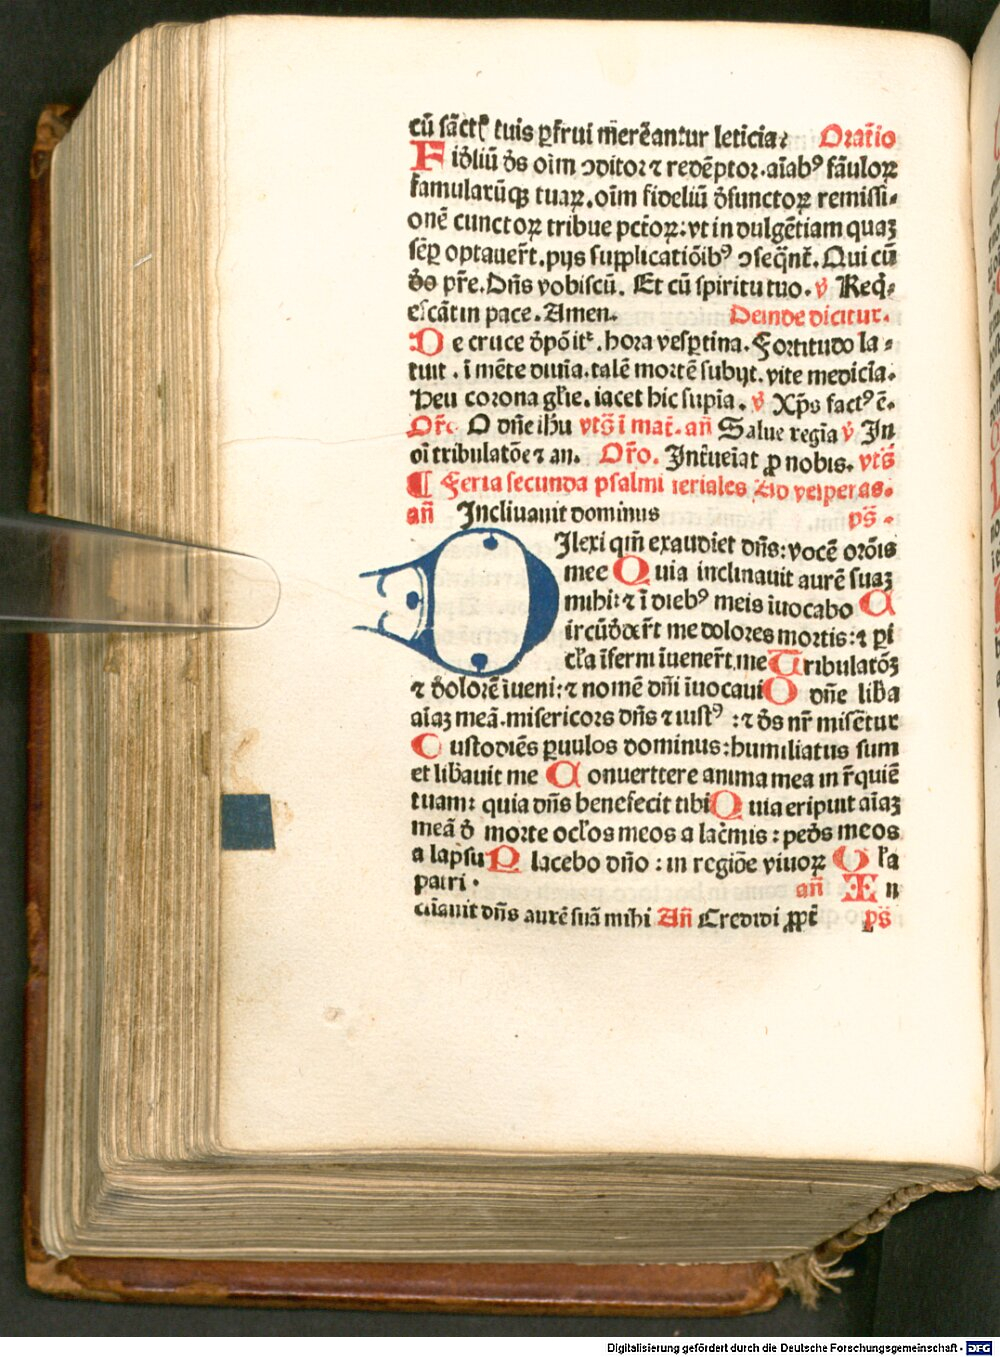 cū sāctꝭ tuis ꝑfrui mereant̄ur leticia: Oratio
Fidliū ds oīm ↄditor ⁊ redēptor. aīabꝰ fāuloꝝ
famularūqꝫ tuaꝝ. oīm fideliū dfunctoꝝ remissi⸗
onē cunctoꝝ tribue pctoꝝ: vt indulgētiam quaꝫ
sēꝑ optauer̄t. pijs supplicatiōibꝰ ↄseqnt̄. Qui cū
do pr̄e. Dn̄s vobiscū. Et cū spiritu tuo. v̇ Req⸗
escāt in pace. Amen. Deinde dicitur.
De cruce dpōit᷑. hora vesꝑtina. Fortitudo la⸗
tuit. ī mēte diuīa. talē mortē subijt. vite medicīa.
Heu corona glīe. iacet hic supīa. v̇ Xp̄s factꝰ ē.
Or̄o O dn̄e ihu vts̄ ī mat̄. an̄ Salue regīa v̇ In
oī tribulatōe ⁊ an. Or̄o. Int̄ueīat ꝓ nobis. vts̄
¶ Feria secunda psalmi feriales Ad vesperas.
an̄ Inclinauit dominus ps̄.
DIlexi qm̄ exaudiet dn̄s: vocē orōis
mee Quia inclinauit aurē suaꝫ
mihi: ⁊ ī diebꝰ meis īuocabo C
ircūdder̄t me dolores mortis: ⁊ pi
cla īferni īuener̄t. me Tribulatōꝫ
⁊ dolorē īueni: ⁊ nomē dn̄i īuocaui O dn̄e liba
aīaꝫ meā. misericors dn̄s ⁊ iustꝰ : ⁊ ds nr̄ misētur
Custodiēs ꝑuulos dominus: humiliatus sum
et libauit me Conuerttere anima mea in r̄quiē
tuam: quia dn̄s benefecit tibi Quia eripuit aīaꝫ
meā d morte oclos meos a lac̄mis: peds meos
a lapsu Placebo dn̄o: in regiōe viuoꝝ Gl̄a
patri. an̄ In
clīauit dn̄s aurē suā mihi An̄ Credidi ꝓpt̄ ps̄
Digitalisierung gefördert durch die Deutsche Forschungsgemeinschaft - DFG